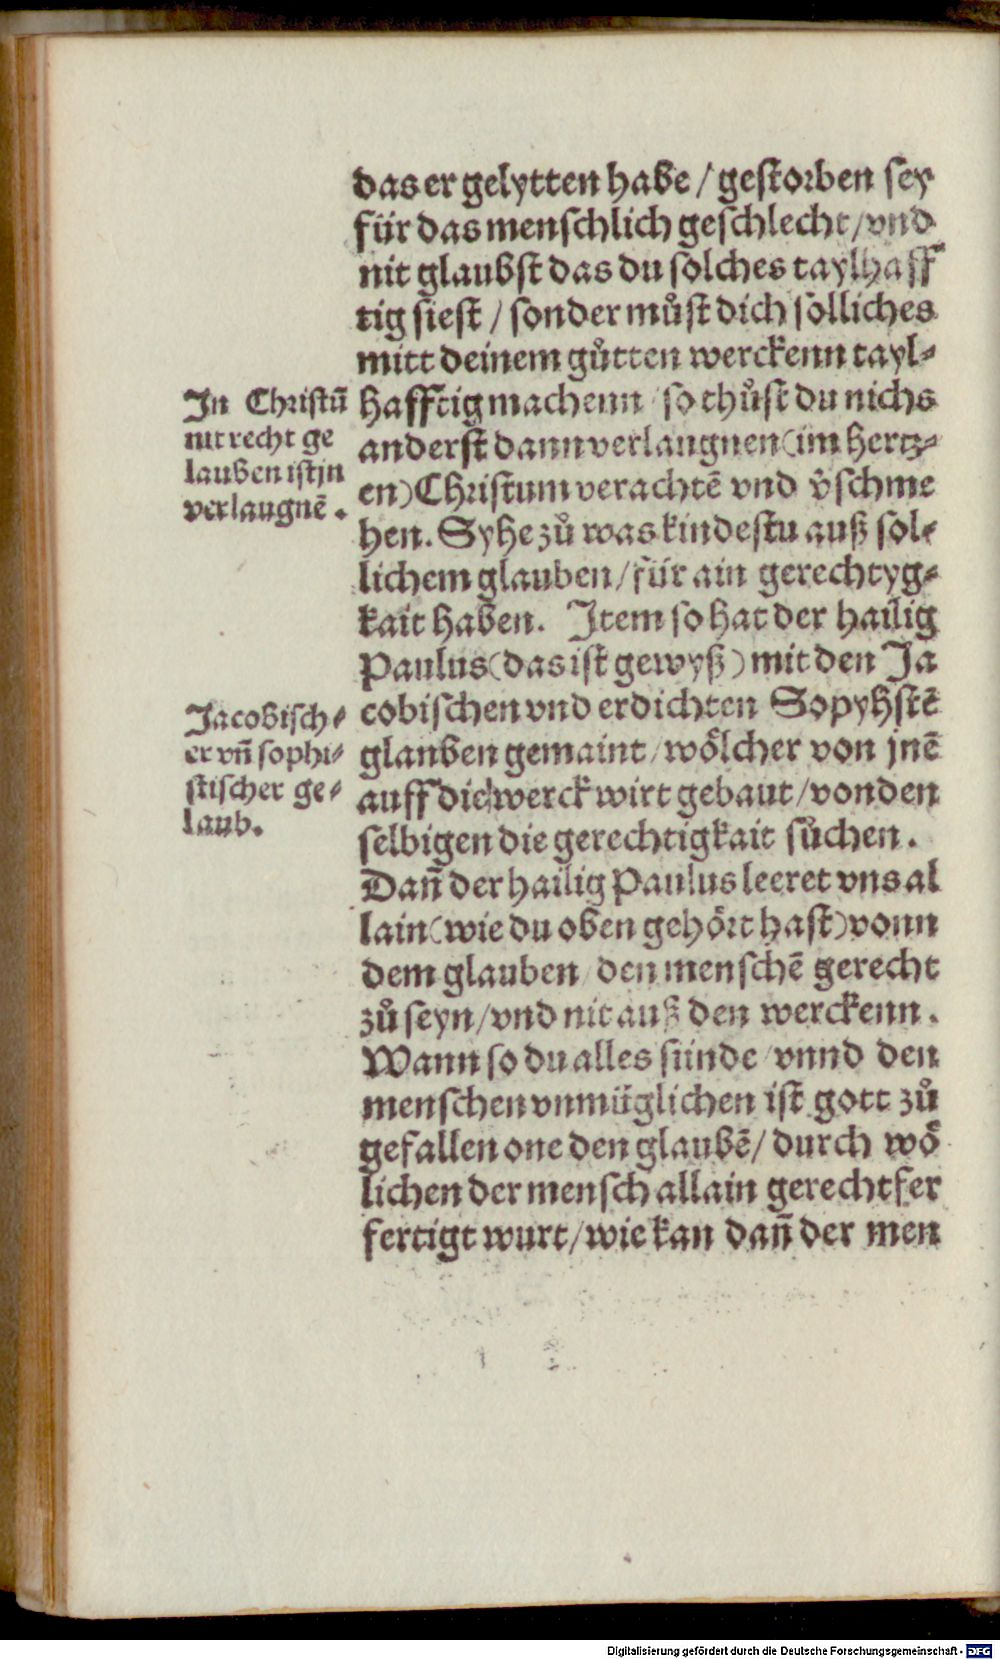 das er gelytten habe / gestorben sey
für das menschlich geschlecht / vnd
nit glaubst das du solches taylhaff
tig siest / sonder můst dich solliches
mitt deinem gůtten werckenn tayl⸗
hafftig machenn / so thůst du nichs
anderst dann verlaugnen (im hertz⸗
en) Christum verachtē vnd v̄schme
hen. Syhe zů was kindestu auß sol⸗
lichem glauben / für ain gerechtyg⸗
kait haben. Item so hat der hailig
Paulus (das ist gewyß) mit den Ja
cobischen vnd erdichten Sopyhstē
glauben gemaint / wölcher von jnē
auff die werck wirt gebaut / von den
selbigen die gerechtigkait sůchen.
Dan̄ der hailig Paulus leeret vns al
lain (wie du oben gehört hast) vonn
dem glauben / den menschē gerecht
zů seyn / vnd nit auß den werckenn.
Wann so du alles sünde / vnnd den
menschen vnmüglichen ist gott zů
gefallen one den glaubē / durch wö
lichen der mensch allain gerechtfer
fertigt wurt / wie kan dan̄ der men
In Christū
nit recht ge
lauben ist jn
verlaugnē.
Jacobisch⸗
er vn̄ sophi⸗
stischer ge⸗
laub.
Digitalisierung gefördert durch die Deutsche Forschungsgemeinschaft - DFG